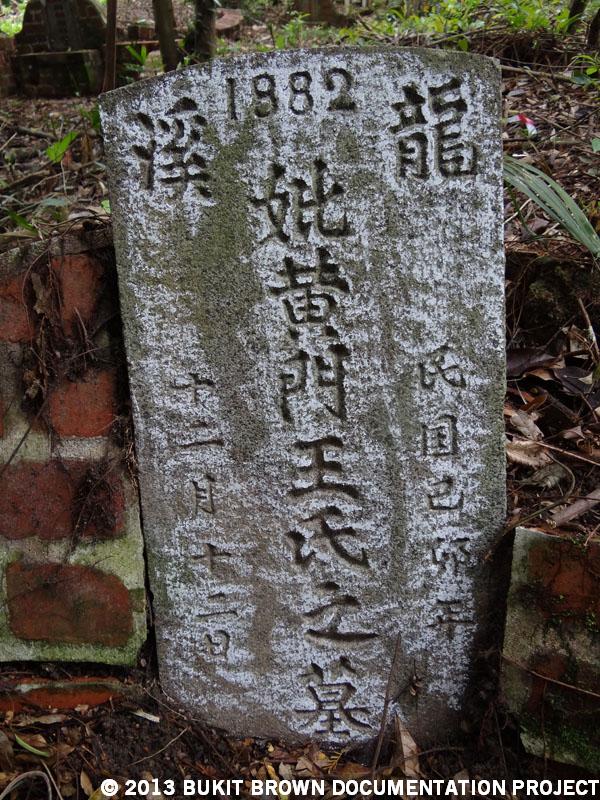 1982
龍溪
民国己卯年
妣黃門王氏之墓
十二月十二日
© 2013 BUKIT BROWN DOCUMENTATION PROJECT